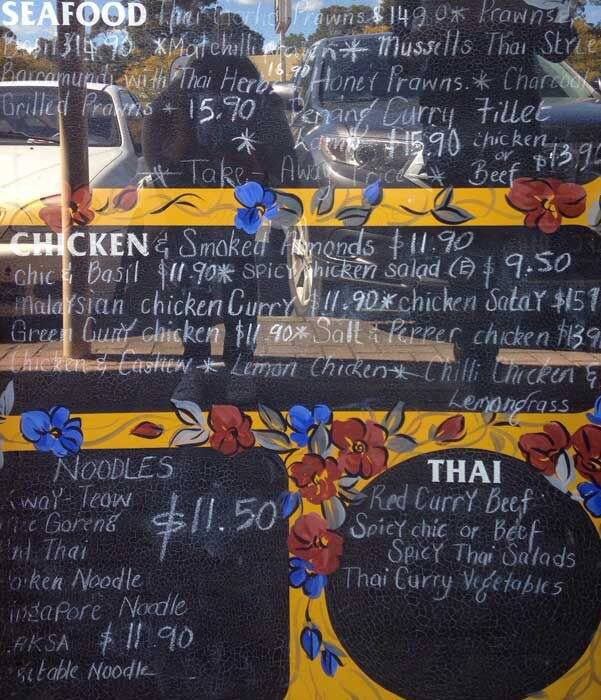 SEAFOOD Thai Garlic Prawns $14.90* Prawns
Basil $14.90 *Mat chilli Prawn * Mussells Thai Style
Barramundi with Thai Herb 16.90 Honey Prawns * Charcoal
Grilled Prawns + 15.90 Penang Curry Fillet
* Lamb $15.90 chicken or Beef $13.9
* Take-Away Price *
CHICKEN & Smoked Almonds $11.90
chic & Basil $11.90* SPICY chicken salad (E) $9.50
malaysian chicken Curry $11.90*chicken SataY $15
Green Curry chicken $11.90* Salt & Pepper chicken $13.9
Chicken & Cashew * Lemon Chicken* Chilli Chicken &
Lemongrass
NOODLES
way-Teow
Goreng $11.50
Thai
Noodle
ingapore Noodle
AKSA $11.90
etable Noodle
THAI
Red CurrY Beef
SpicY chic or Beef
SpicY Thai Salads
Thai Curry Vegetables